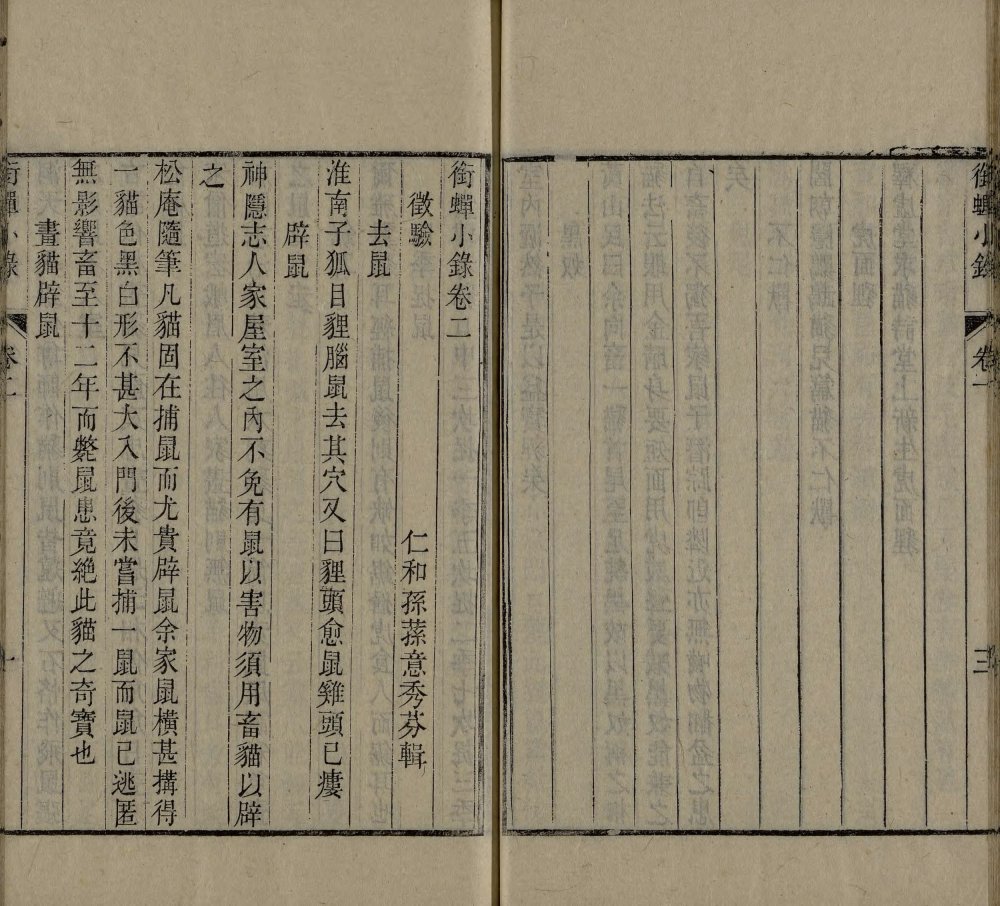 銜蟬小錄
卷一
三
銜蟬小錄卷二
仁和孫蓀意秀芬輯
徵驗
去鼠
淮南子狐目貍腦鼠去其穴又曰貍頭愈鼠雞頭已瘻
辟鼠
神隱志人家屋室之內不免有鼠以害物須用畜貓以辟
之
松庵隨筆凡貓固在捕鼠而尤貴辟鼠余家鼠橫甚搆得
一貓色黑白形不甚大入門後未嘗捕一鼠而鼠已逃匿
無影響畜至十二年而斃鼠患竟絶此貓之奇寶也
畫貓辟鼠
銜蟬小錄
卷二
一